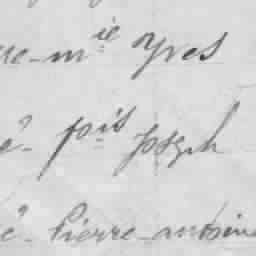 re-m^ie Yves
é- f^ois Joseph
é- Pierre-antoine